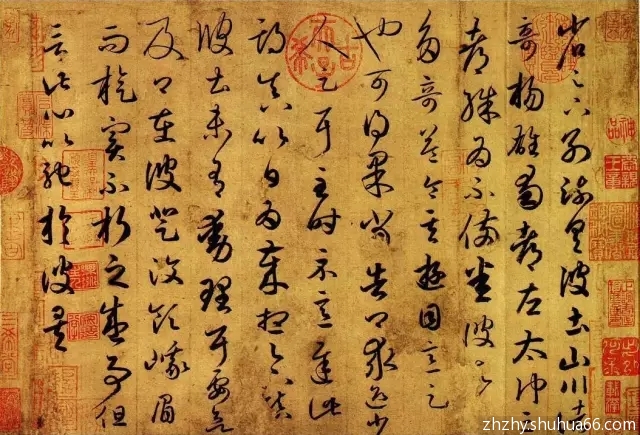 省足下別疏具彼土山川諸
奇揚雄蜀都左太沖三
都殊為不備悉彼故為
多奇益令其遊目意足
也可得果當告卿求迎少
人足耳至時示意遲此
期真以日為歲想足下鎮
彼土未有動理耳要欲
及卿在彼登汶領峨眉
而旋實不朽之盛事但
言此心以馳於彼矣
zhzhy.shuhua66.com